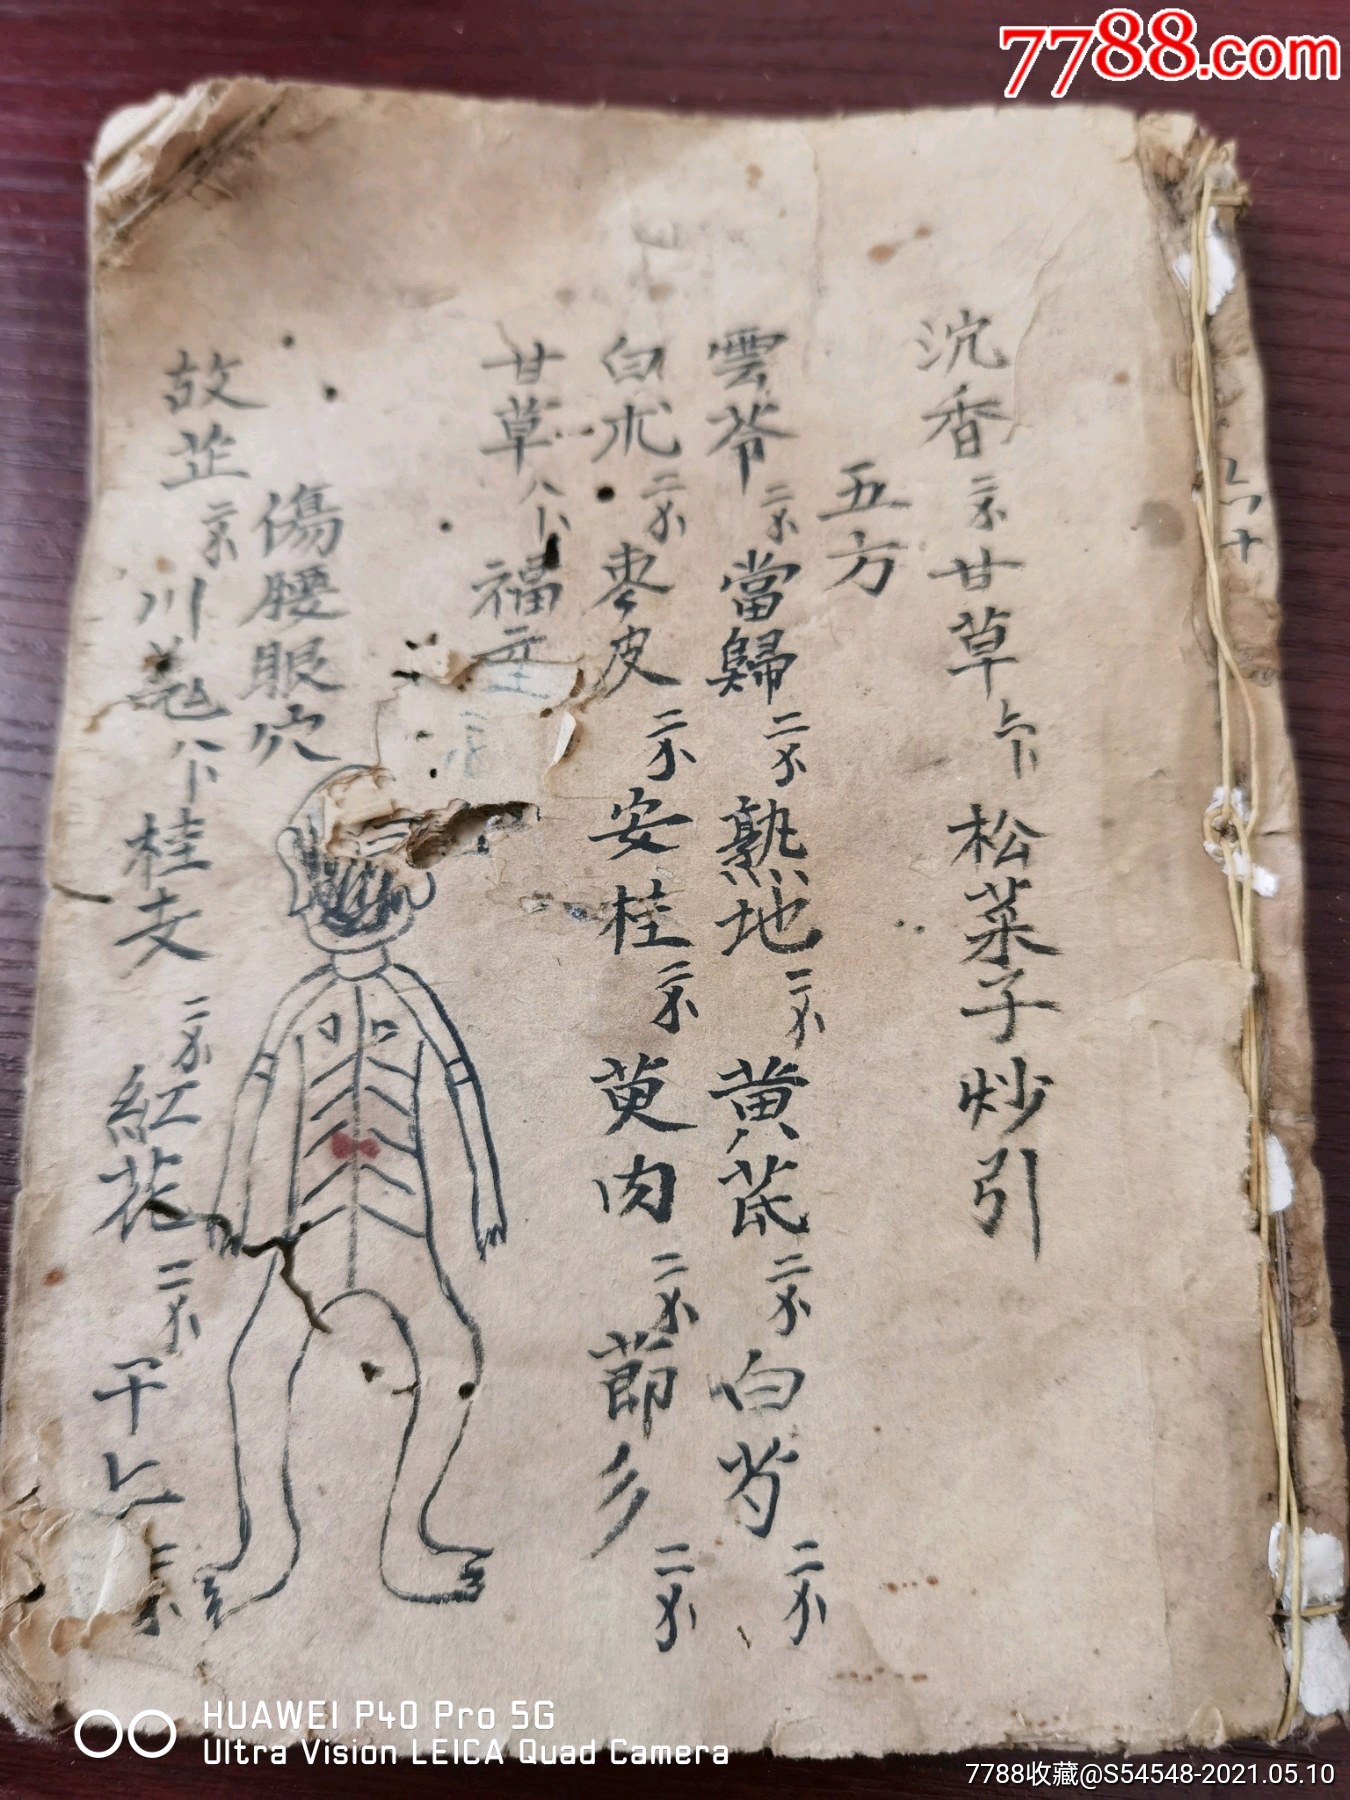 7788.com
沉香二不甘草六卜松菜子炒引
五方
雲苓二不當歸二不熟地二不黄芪二不白芍二不
白朮二不枣皮二不安桂二不萸肉二不節乡二不
甘草八卜福
傷腰眼穴
故芷二不川芎八卜桂支二不紅花二不干
HUAWEI P40 Pro 5G
Ultra Vision LEICA Quad Camera
7788收藏@S54548-2021.05.10